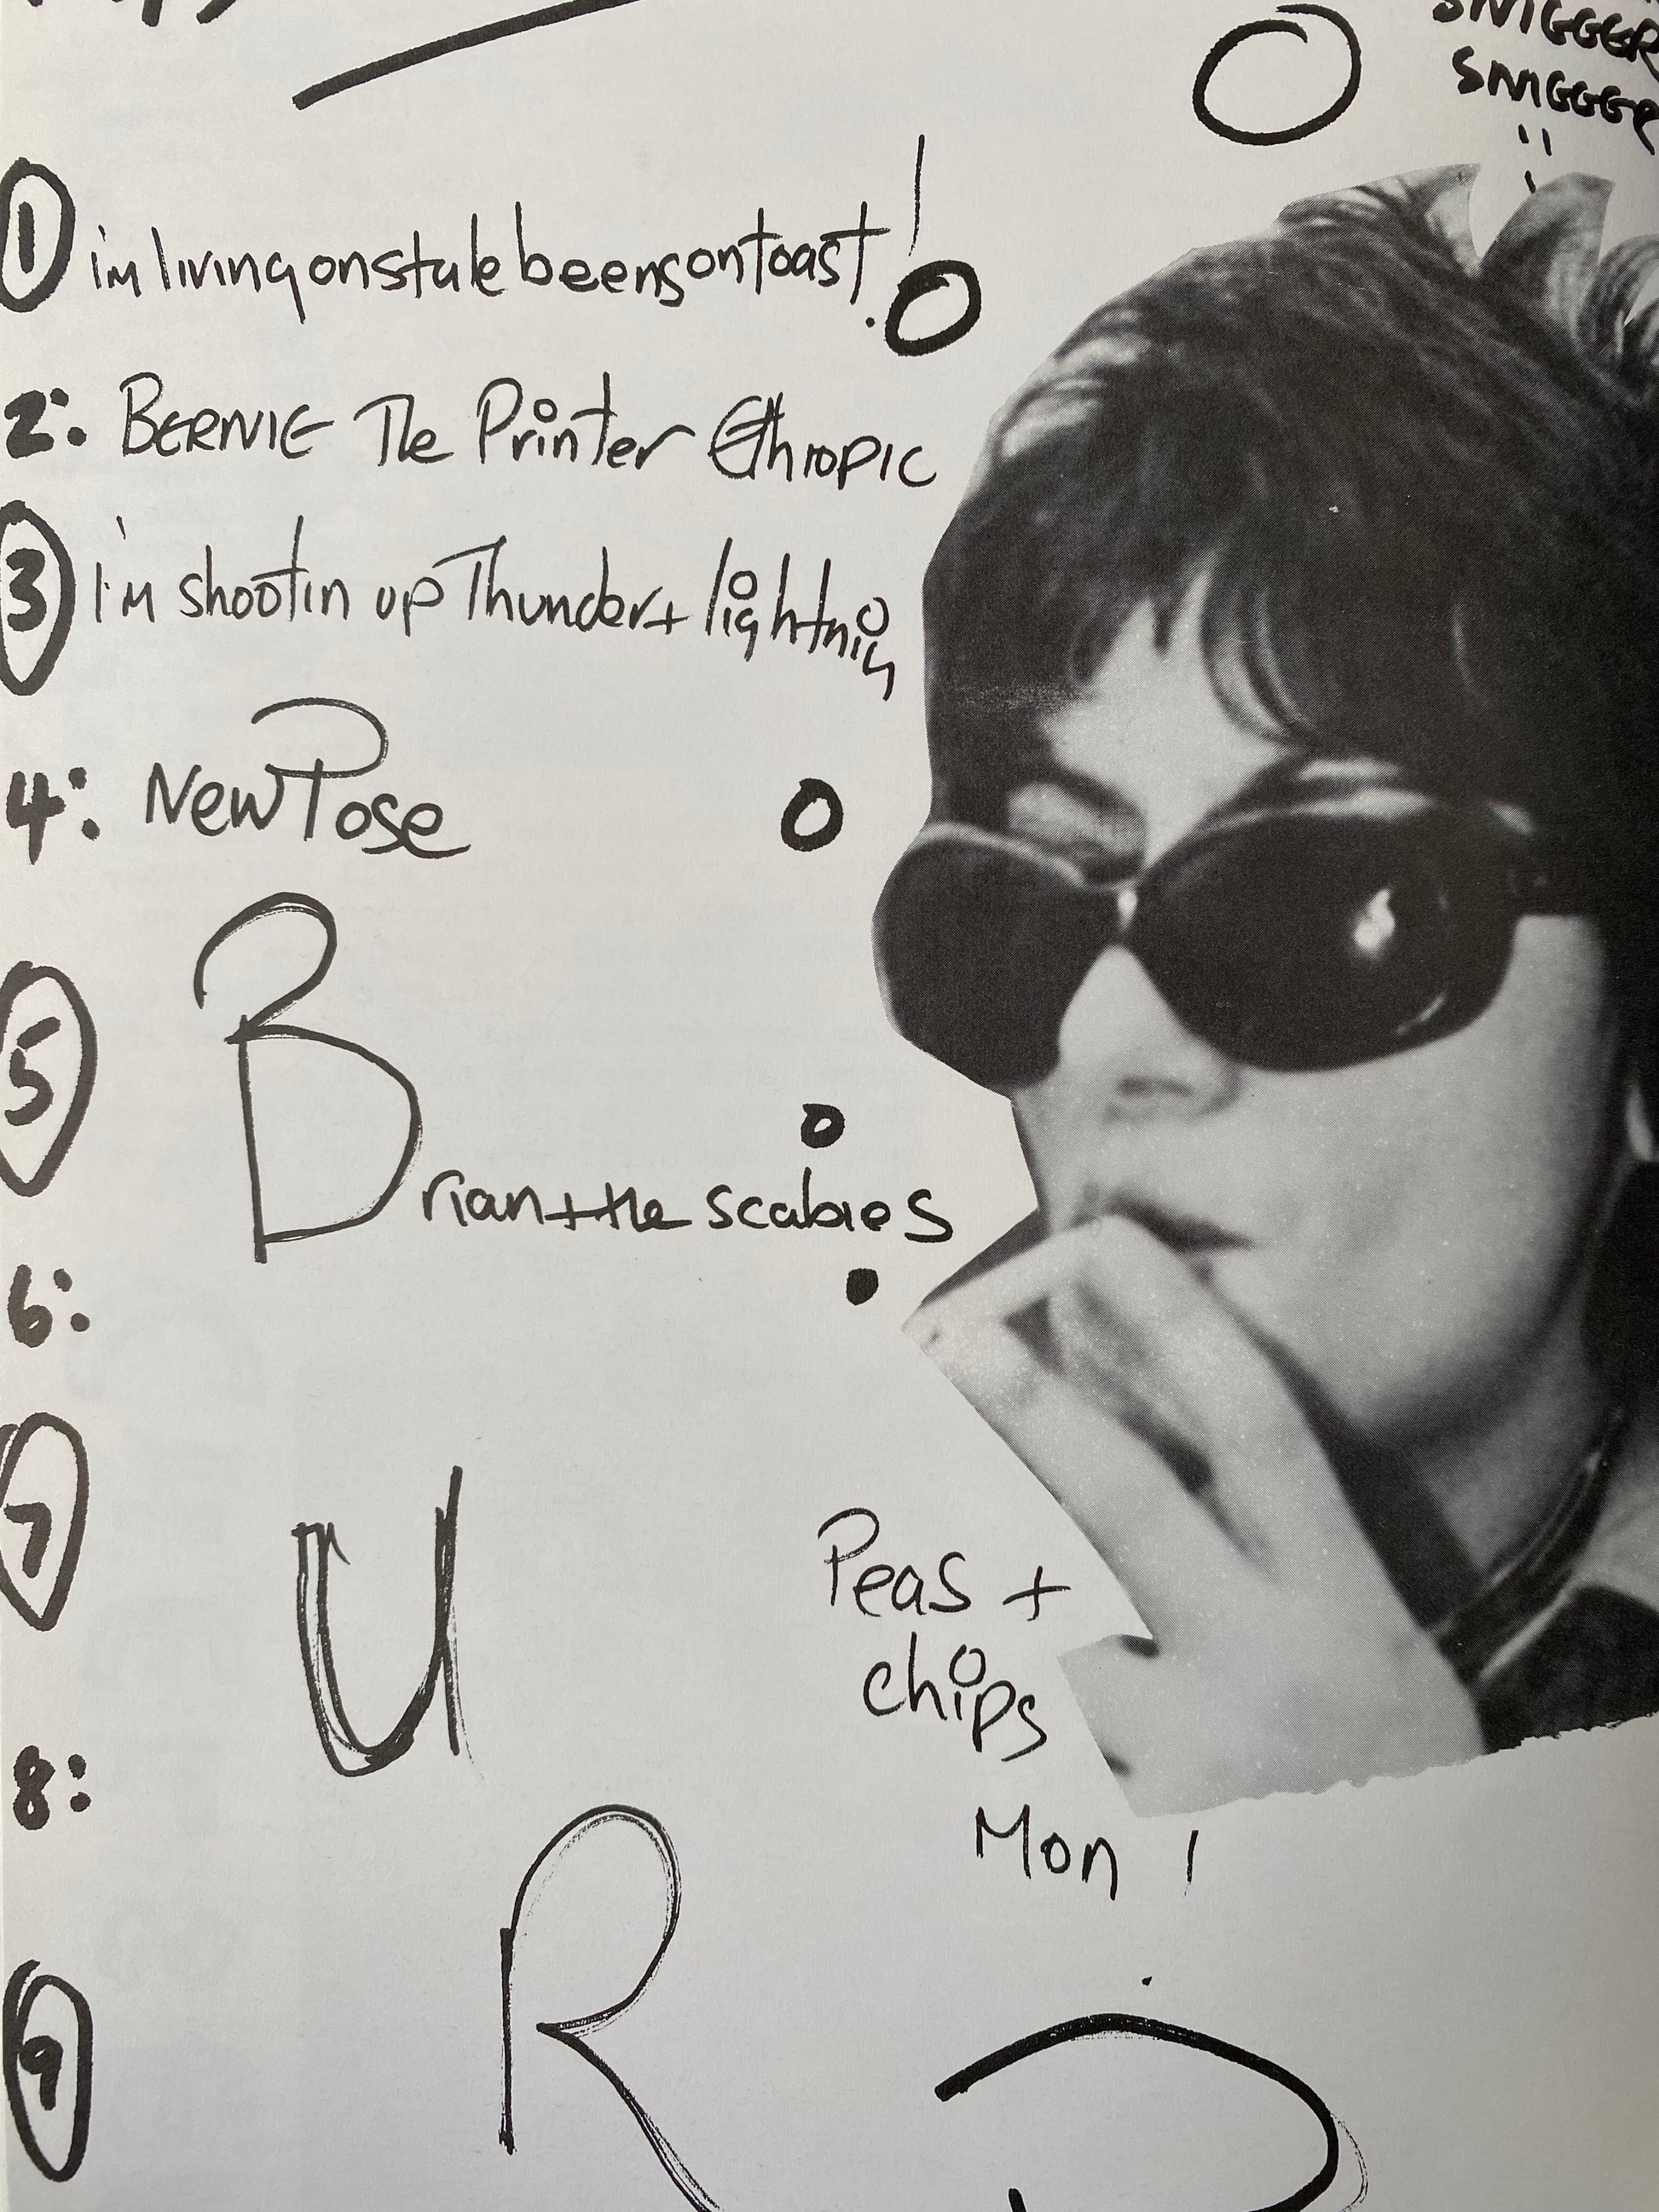 SNIGGER
SNIGGER
① im living on stale beens on toast!
2: BERNIE The Printer Ethiopic
③ I'm shootin up Thunder + lightnin
4: New Pose
⑤ Brian + the scabies
6:
⑦ U
Peas +
chips
Mon!
8:
R
⑨